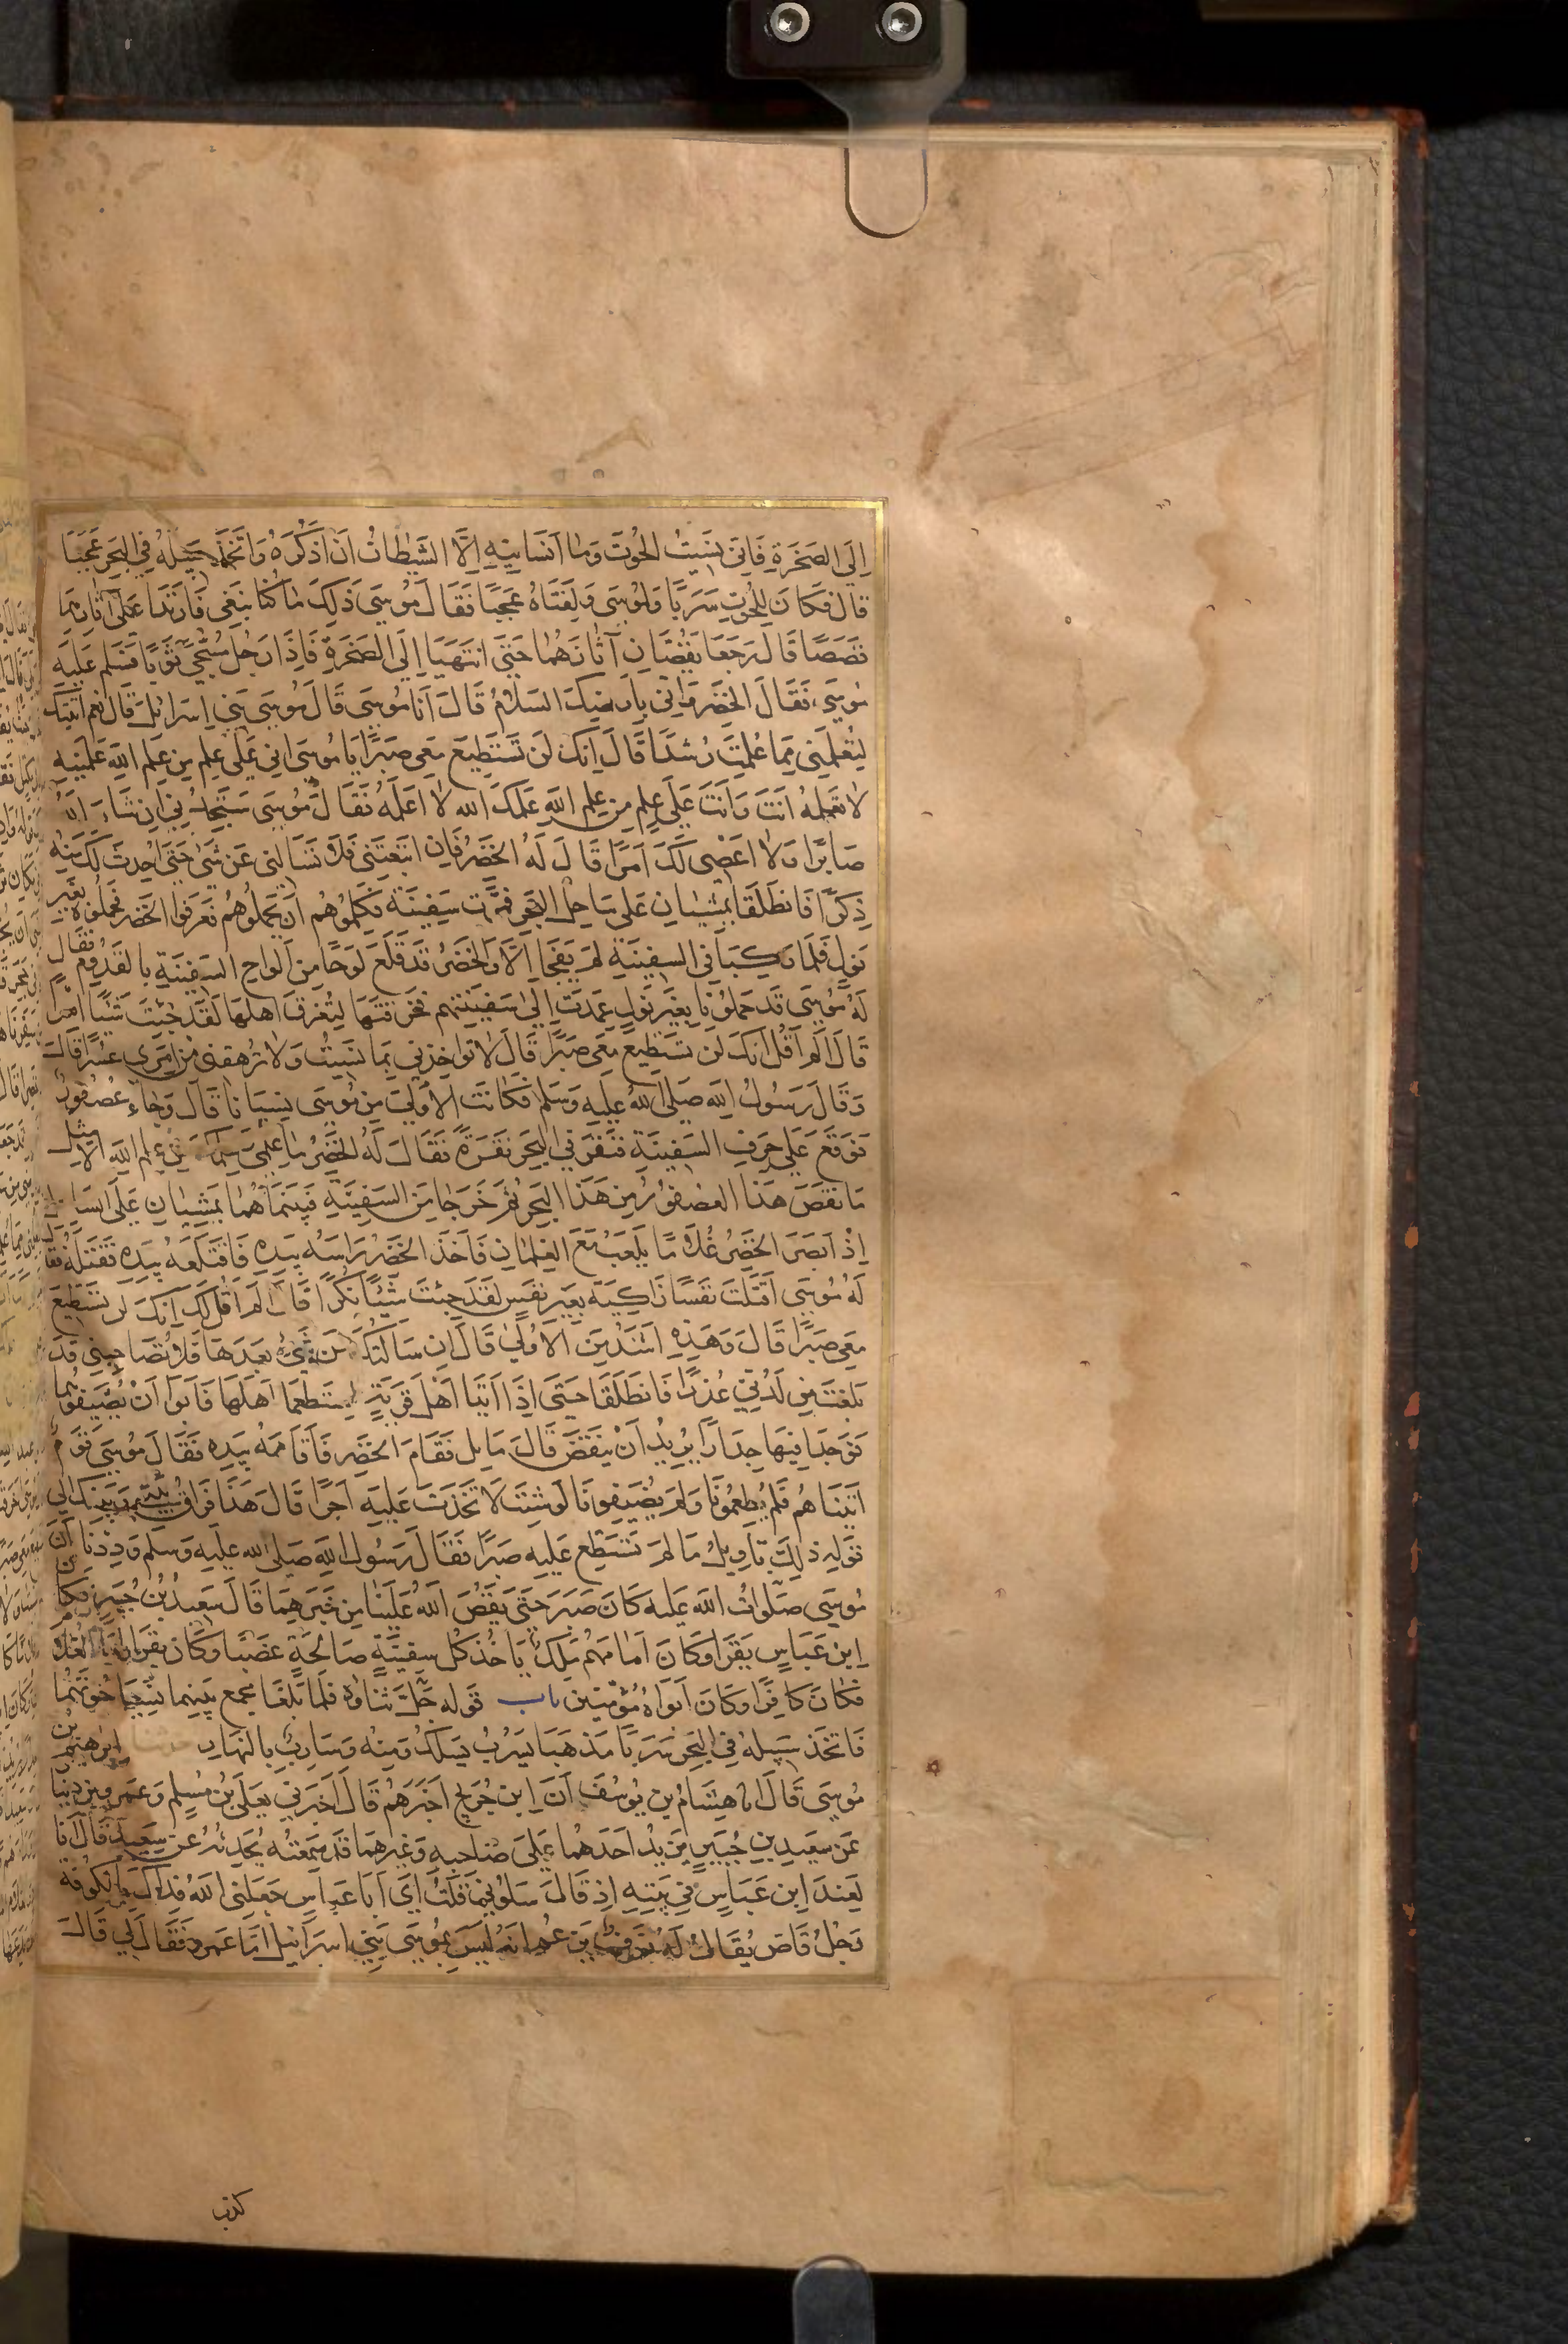 إِلَى الصَّخْرَةِ فَإِنِّي نَسِيتُ الحُوتَ وَمَا أَنْسَانِيهِ إِلَّا الشَّيْطَانُ أَنْ أَذْكُرَهُ وَاتَّخَذَ سَبِيلَهُ فِي البَحْرِ عَجَبًا
قال فكَانَ لِلْحُوتِ سَرَبًا وَلِمُوسَى وَلِفَتَاهُ عَجَبًا فَقَالَ مُوسَى ذَلِكَ مَا كُنَّا نَبْغِي فَارْتَدَّا عَلَى آثَارِهِمَا
قَصَصًا قَالَ رَجَعَا يَقُصَّانِ آثَارَهُمَا حَتَّى انْتَهَيَا إِلَى الصَّخْرَةِ فَإِذَا رَجُلٌ مُسَجًّى ثَوْبًا فَسَلَّمَ عَلَيْهِ
مُوسَى فَقَالَ الخَضِرُ وَأَنَّى بِأَرْضِكَ السَّلَامُ قَالَ أَنَا مُوسَى قَالَ مُوسَى بَنِي إِسْرَائِلَ قَالَ نَعَمْ أَتَيْتُكَ
لِتُعَلِّمَنِي مِمَّا عُلِّمْتَ رُشْدًا قَالَ إِنَّكَ لَنْ تَسْتَطِيعَ مَعِي صَبْرًا يَا مُوسَى إِنِّي عَلَى عِلْمٍ مِنْ عِلْمِ اللَّهِ عَلَّمَنِيهِ
لَا تَعْلَمُهُ أَنْتَ وَأَنْتَ عَلَى عِلْمٍ مِنْ عِلْمِ اللَّهِ عَلَّمَكَ اللَّه لَا أَعْلَمُهُ فَقَالَ مُوسَى سَتَجِدُنِي إِنْ شَاءَ اللَّهُ
صَابِرًا وَلَا أَعْصِي لَكَ أَمْرًا قَالَ لَهُ الخَضِرُ فَإِنِ اتَّبَعْتَنِي فَلَا تَسْأَلْنِي عَنْ شَيْءٍ حَتَّى أُحْدِثَ لَكَ مِنْهُ
ذِكْرًا فَانْطَلَقَا يَمْشِيَانِ عَلَى سَاحِلِ البَحْرِ فَمَرَّتْ سَفِينَةٌ فَكَلَّمُوهُمْ أَنْ يَحْمِلُوهُمْ فَعَرَفُوا الخَضِرَ فَحَمَلُوهُ بِغَيْرِ
نَوْلٍ فَلَمَّا رَكِبَا فِي السَّفِينَةِ لَمْ يَفْجَأْ إِلَّا وَالخَضِرُ قَدْ قَلَعَ لَوْحًا مِنْ أَلْوَاحِ السَّفِينَةِ بِالقَدُومِ فَقَالَ
لَهُ مُوسَى قَدْ حَمَلُونَا بِغَيْرِ نَوْلٍ عَمَدْتَ إِلَى سَفِينَتِهِمْ فَخَرَقْتَهَا لِتُغْرِقَ أَهْلَهَا لَقَدْ جِئْتَ شَيْئًا إِمْرًا
قَالَ أَلَمْ أَقُلْ إِنَّكَ لَنْ تَسْتَطِيعَ مَعِيَ صَبْرًا قَالَ لَا تُؤَاخِذْنِي بِمَا نَسِيتُ وَلَا تُرْهِقْنِي مِنْ أَمْرِي عُسْرًا قَالَ
وَقَالَ رَسُولُ اللَّهِ صَلَّى اللَّهُ عَلَيْهِ وَسَلَّمَ فَكَانَتِ الأُولَى مِنْ مُوسَى نِسْيَانًا قَالَ وَجَاءَ عُصْفُورٌ
فَوَقَعَ عَلَى حَرْفِ السَّفِينَةِ فَنَقَرَ فِي البَحْرِ نَقْرَةً فَقَالَ لَهُ الخَضِرُ مَا عِلْمِي مِنْ عِلْمِ اللَّهِ إِلَّا مِثْلُ
مَا نَقَصَ هَذَا العُصْفُورُ مِنْ هَذَا البَحْرِ ثُمَّ خَرَجَا مِنَ السَّفِينَةِ فَبَيْنَمَا هُمَا يَمْشِيَانِ عَلَى السَّاحِلِ
إِذْ أَبْصَرَ الخَضِرُ غُلَامًا يَلْعَبُ مَعَ الغِلْمَانِ فَأَخَذَ الخَضِرُ رَأْسَهُ بِيَدِهِ فَاقْتَلَعَهُ بِيَدِهِ فَقَتَلَهُ فَقَالَ
لَهُ مُوسَى أَقَتَلْتَ نَفْسًا زَاكِيَةً بِغَيْرِ نَفْسٍ لَقَدْ جِئْتَ شَيْئًا نُكْرًا قَالَ أَلَمْ أَقُلْ لَكَ إِنَّكَ لَنْ تَسْتَطِيعَ
مَعِي صَبْرًا قَالَ وَهَذِهِ أَشَدُّ مِنَ الأُولَى قَالَ إِنْ سَأَلْتُكَ عَنْ شَيْءٍ بَعْدَهَا فَلَا تُصَاحِبْنِي قَدْ
بَلَغْتَ مِنْ لَدُنِّي عُذْرًا فَانْطَلَقَا حَتَّى إِذَا أَتَيَا أَهْلَ قَرْيَةٍ اسْتَطْعَمَا أَهْلَهَا فَأَبَوْا أَنْ يُضَيِّفُوهُمَا
فَوَجَدَا فِيهَا جِدَارًا يُرِيدُ أَنْ يَنْقَضَّ قَالَ مَايِلٌ فَقَامَ الخَضِرُ فَأَقَامَهُ بِيَدِهِ فَقَالَ مُوسَى قَوْمٌ
أَتَيْنَاهُمْ فَلَمْ يُطْعِمُونَا وَلَمْ يُضَيِّفُونَا لَوْ شِئْتَ لَاتَّخَذْتَ عَلَيْهِ أَجْرًا قَالَ هَذَا فِرَاقُ بَيْنِي وَبَيْنِكَ إِلَى
قَوْلِهِ ذَلِكَ تَأْوِيلُ مَا لَمْ تَسْتَطِعْ عَلَيْهِ صَبْرًا فَقَالَ رَسُولُ اللَّهِ صَلَّى اللَّه عَلَيْهِ وَسَلَّمَ وَدِدْنَا أَنَّ
مُوسَى صَلَوَاتُ اللَّهِ عَلَيْهِ كَانَ صَبَرَ حَتَّى يَقُصَّ اللَّهُ عَلَيْنَا مِنْ خَبَرِهِمَا قَالَ سَعِيدُ بْنُ جُبَيْرٍ فَكَانَ
ابْنُ عَبَّاسٍ يَقْرَأُ وَكَانَ أَمَامَهُمْ مَلِكٌ يَأْخُذُ كُلَّ سَفِينَةٍ صَالِحَةٍ غَصْبًا وَكَانَ يَقْرَأُ وَأَمَّا الغُلَامُ
فَكَانَ كَافِرًا وَكَانَ أَبَوَاهُ مُؤْمِنَيْنِ باب قَوْله جَلَّ ثَنَاؤُهُ فَلَمَّا بَلَغَا مَجْمَعَ بَيْنِهِمَا نَسِيَا حُوتَهُمَا
فَاتَّخَذَ سَبِيلَهُ فِي البَحْرِ سَرَبًا مَذْهَبًا يَسْرُبُ يَسْلُكُ وَمِنْهُ وَسَارِبٌ بِالنَّهَارِ حدثنا إبرهيم بْنُ
مُوسَى قَالَ أنا هِشَامُ بْنُ يُوسُفَ أَنَّ ابْنَ جُرَيْجٍ أَخْبَرَهُمْ قَالَ أَخْبَرَنِي يَعْلَى بْنُ مُسْلِمٍ وَعَمْرُو بْنُ دِينَارٍ
عَنْ سَعِيدِ بْنِ جُبَيْرٍ يَزِيدُ أَحَدُهُمَا عَلَى صَاحِبِهِ وَغَيْرُهُمَا قَدْ سَمِعْتُهُ يُحَدِّثُهُ عَنْ سَعِيدٍ قَالَ إِنَّا
لَعِنْدَ ابْنِ عَبَّاسٍ فِي بَيْتِهِ إِذْ قَالَ سَلُونِي قُلْتُ أَيْ أَبَا عَبَّاسٍ جَعَلَنِي اللَّهُ فِدَاكَ بِالكُوفَةِ
رَجُلٌ قَاصٌّ يُقَالُ لَهُ نَوْفٌ يَزْعُمُ أَنَّهُ لَيْسَ بِمُوسَى بَنِي إِسْرَائِيلَ أَمَّا عَمْرٌو فَقَالَ لِي قَالَ
كذب